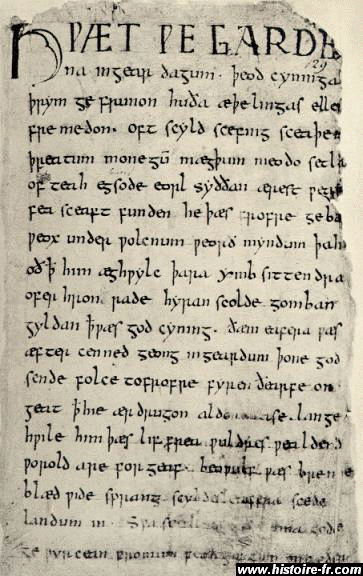 HǷÆT ǷE GARDE
na ingear dagum. þeod cyninga
þrym ge frunon huða æþelingas elle
fremedon. oft scyld scefing sceaþen
þreatum monegū mægþum meodo setla
of teah egsode eorl syððan ærest ƿear
fea sceaft funden he þæs frofre geba
ƿeox under ƿolcnum ƿeorð myndum þah
oð þ him æghƿylc þara ymb sittendra
ofer hron rade hyran scolde gomban
gyldan þæs god cyning. ðæm eafera ƿæs
æfter cenned geong ingeardum þone god
sende folce tofrofre fyren ðearfe on
geat þ hie ær drugon aldor ase. lange
hƿile him þæs lif frea ƿuldres ƿealdend
ƿorold are for geaf. beoƿulf ƿæs breme
blæd ƿide sprang scyldes eafera scede
landum in. Sƿa
ge ƿyrcean fromum
www.histoire-fr.com